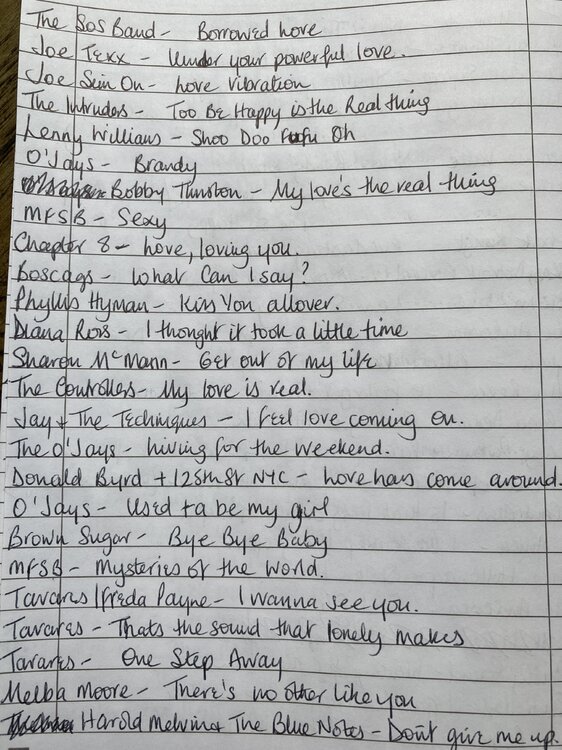 The SOS Band - Borrowed Love
Joe Texx - Under your powerful love.
Joe Sim On - Love vibration
The Intruders - Too Be Happy is the Real thing
Lenny Williams - Shoo Doo Fufu Oh
O'Jays - Brandy
Bobby Thurston - My love's the real thing
MFSB - Sexy
Chapter 8 - Love, loving you.
Boscags - What Can I say?
Phyllis Hyman - Kiss You allover.
Diana Ross - I thought it took a little time
Sharon McMann - Get out of my life
The Controllers - My love is real.
Jay + The Techniques - I feel love coming on.
The O'Jays - Living for the weekend.
Donald Byrd + 125th St NYC - Love has come around.
O'Jays - Used ta be my girl
Brown Sugar - Bye Bye Baby
MFSB - Mysteries of the World.
Tavares / Freda Payne - I wanna see you.
Tavares - Thats the sound that lonely makes
Tavares - One Step Away
Melba Moore - There's no other like you
Harold Melvin + The Blue Notes - Don't give me up.